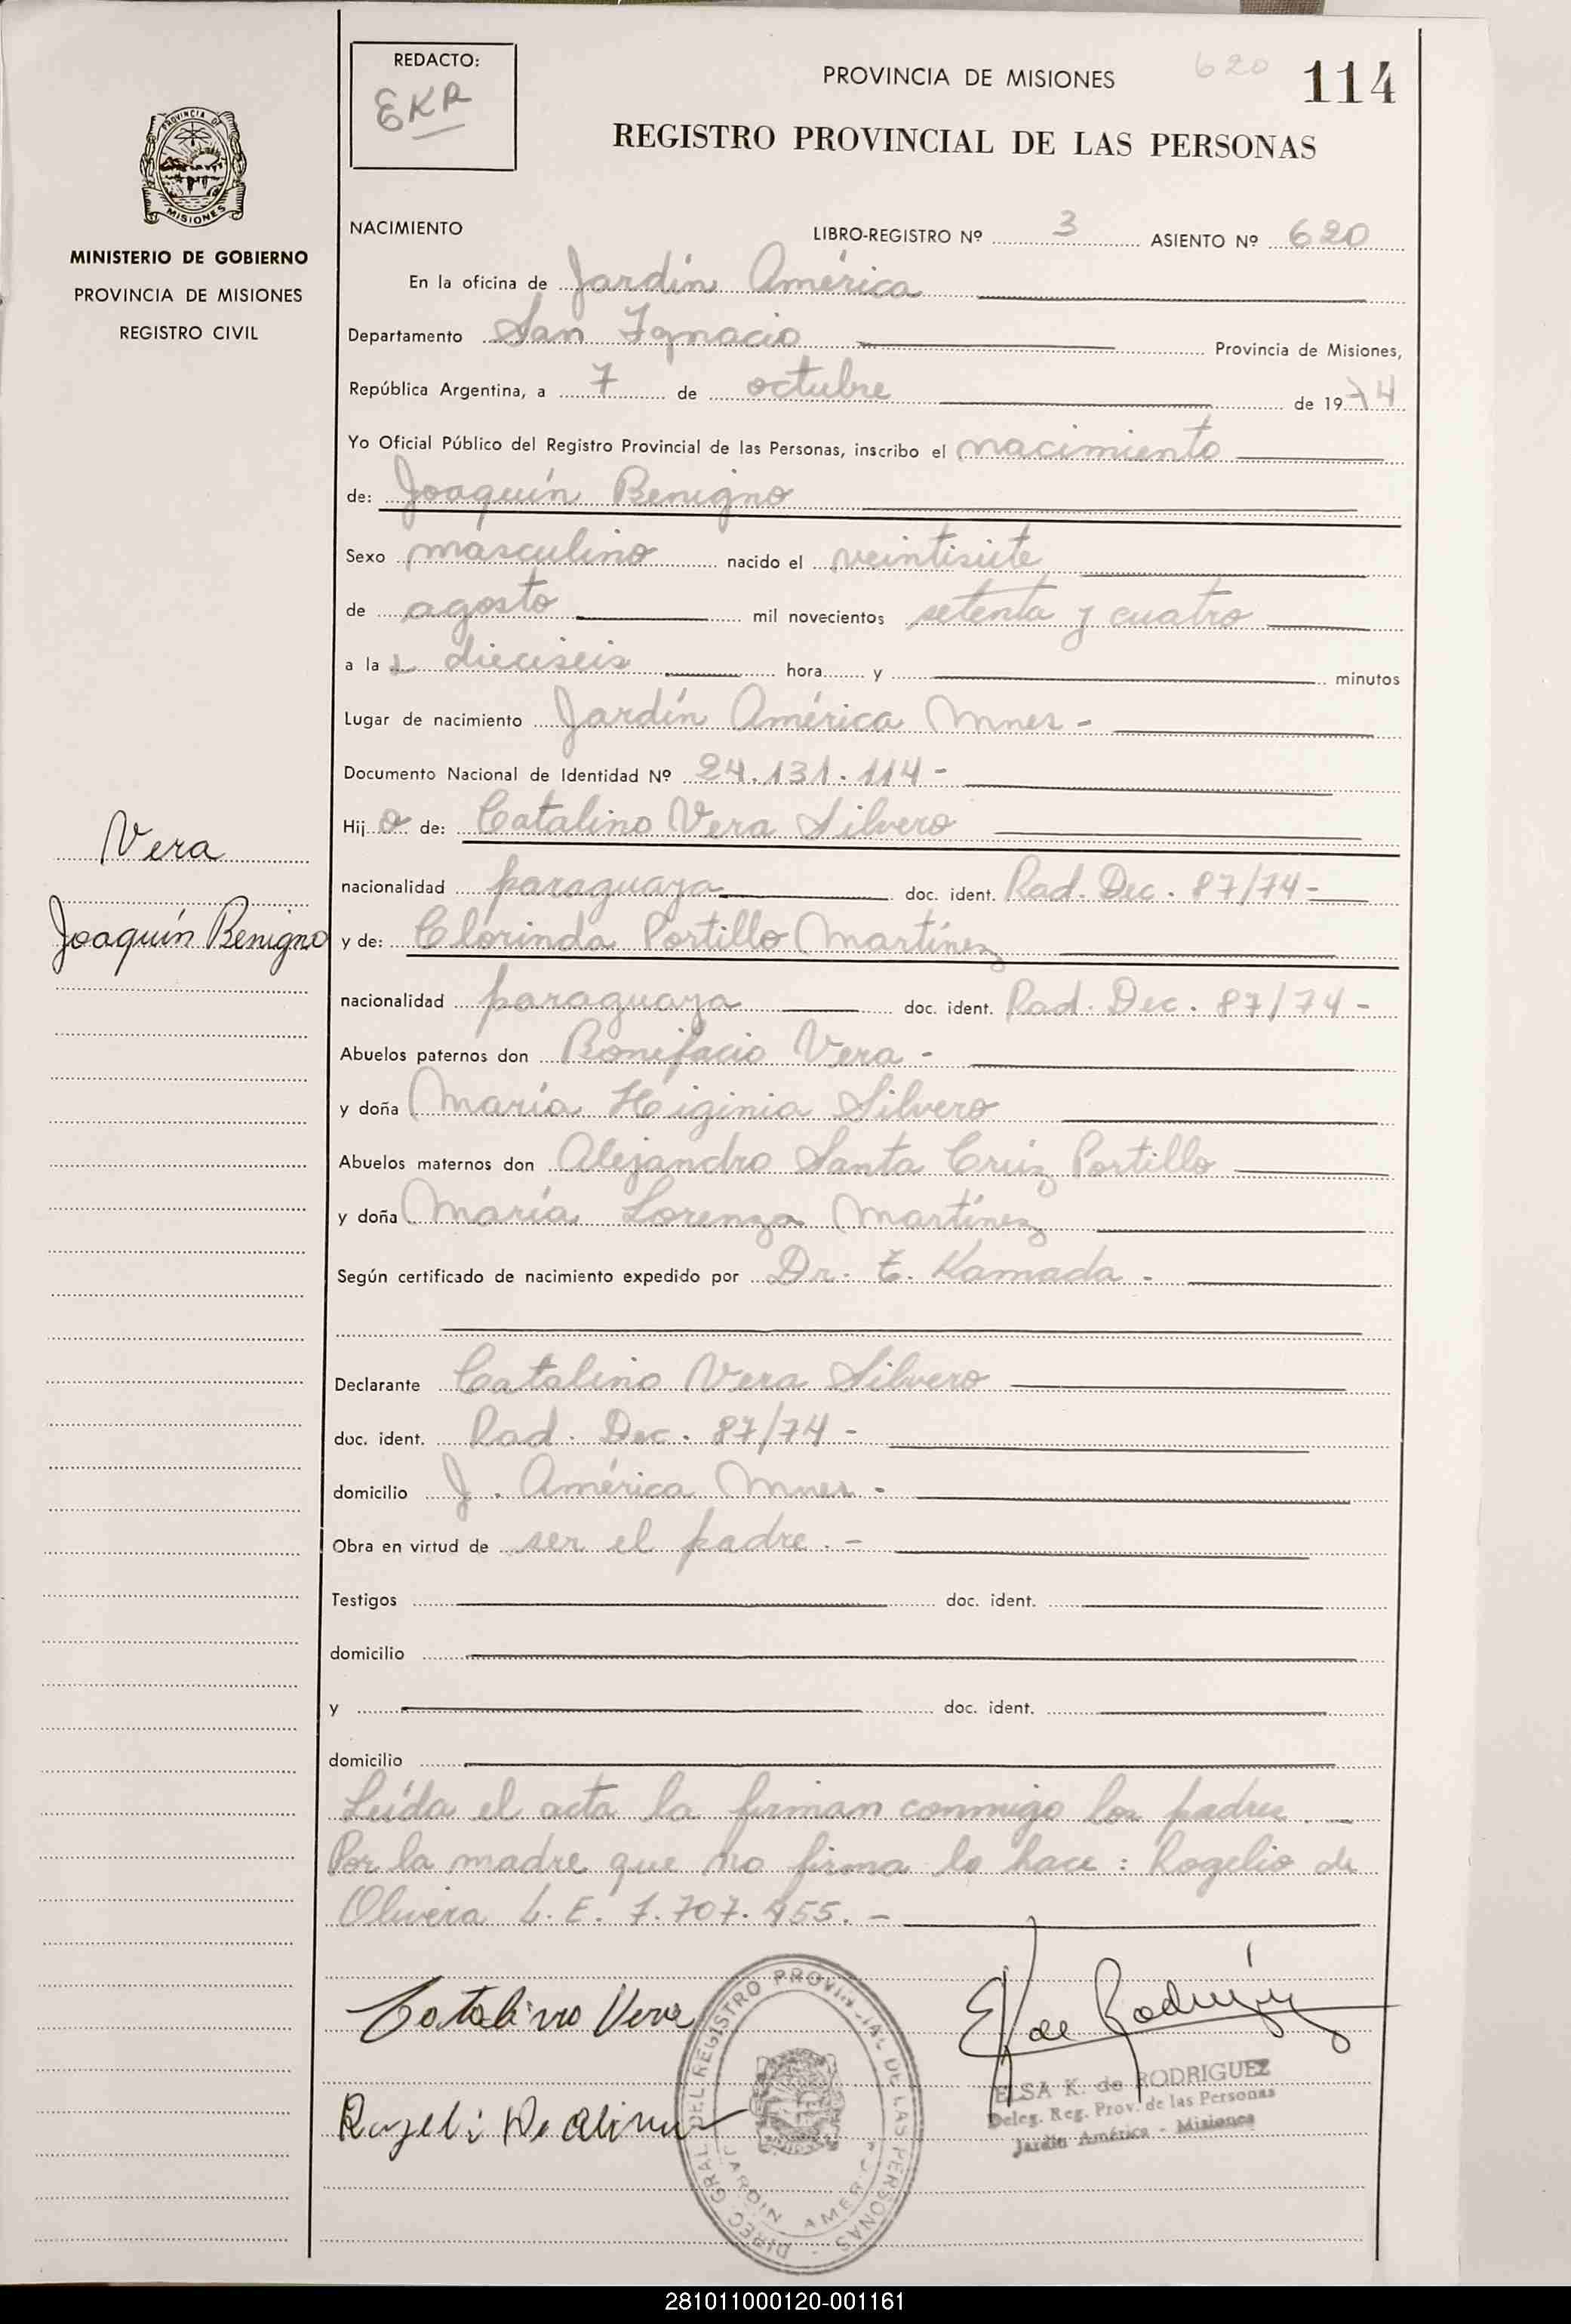 REDACTO:
EKR
PROVINCIA DE MISIONES
620
114
REGISTRO PROVINCIAL DE LAS PERSONAS
PROVINCIA DE
MISIONES
MINISTERIO DE GOBIERNO
PROVINCIA DE MISIONES
REGISTRO CIVIL
NACIMIENTO
LIBRO-REGISTRO Nº 3 ASIENTO Nº 620
En la oficina de Jardín América
Departamento San Ignacio Provincia de Misiones,
República Argentina, a 7 de octubre de 1974
Yo Oficial Público del Registro Provincial de las Personas, inscribo el nacimiento
de: Joaquín Benigno
Sexo masculino nacido el veintisiete
de agosto mil novecientos setenta y cuatro
a la s dieciseis hora y minutos
Lugar de nacimiento Jardín América Mnes -
Documento Nacional de Identidad Nº 24.131.114 -
Hijo de: Catalino Vera Silvero
nacionalidad paraguaya doc. ident. Rad. Dec. 87/74 -
y de: Clorinda Portillo Martínez
nacionalidad paraguaya doc. ident. Rad. Dec. 87/74 -
Abuelos paternos don Bonifacio Vera -
y doña María Higinia Silvero
Abuelos maternos don Alejandro Santa Cruz Portillo
y doña María Lorenza Martínez
Según certificado de nacimiento expedido por Dr. E. Kamada -
Vera
Joaquín Benigno
Declarante Catalino Vera Silvero
doc. ident. Rad. Dec. 87/74 -
domicilio J. América Mnes. -
Obra en virtud de ser el padre. -
Testigos doc. ident.
domicilio
y doc. ident.
domicilio
Leída el acta la firman conmigo los padres. -
Por la madre que no firma lo hace: Rogelio de
Olivera L.E. 7.707.455. -
Catalino Vera
E K de Rodriguez
ELSA K. de RODRIGUEZ
Deleg. Reg. Prov. de las Personas
Jardín América - Misiones
DIREC GRAL DEL REGISTRO PROVINCIAL DE LAS PERSONAS -
JARDIN AMERICA
281011000120-001161